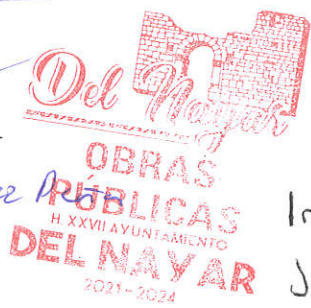 Del Nayar
OBRAS
PÚBLICAS
H. XXVII AYUNTAMIENTO
DEL NAYAR
2021-2024